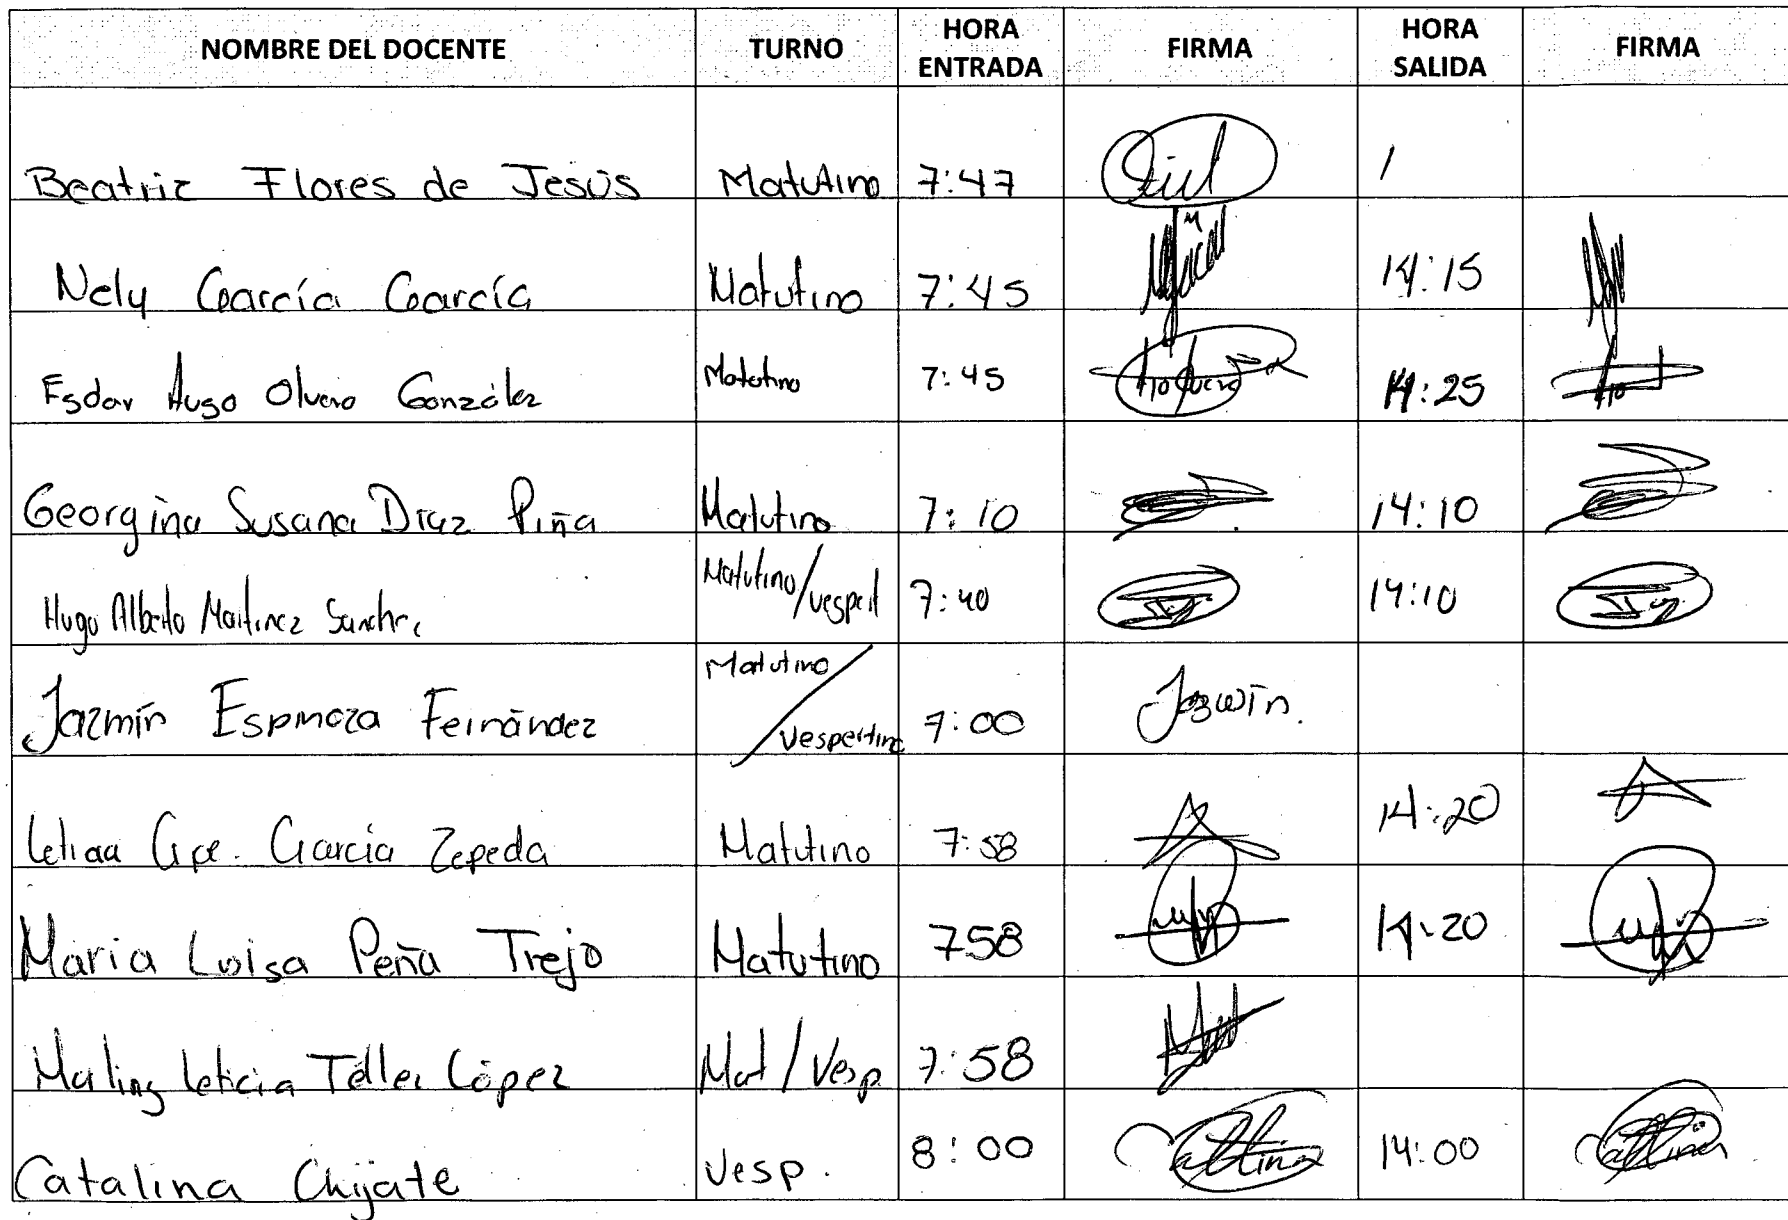 NOMBRE DEL DOCENTE TURNO HORA ENTRADA FIRMA HORA SALIDA FIRMA
Beatriz Flores de Jesús Matutino 7:47 /
Nely García García Matutino 7:45 14:15
Esdar Hugo Olvera González Matutino 7:45 14:25
Georgina Susana Díaz Piña Matutino 7:10 14:10
Hugo Alberto Martinez Sanchez Matutino/vespert 7:40 14:10
Jazmín Espinoza Fernández Matutino / Vespertino 7:00 Jazmín.
Leticia Gpe. García Zepeda Matutino 7:58 14:20
Maria Luisa Peña Trejo Matutino 758 14:20
Leticia Téllez López Mat/Vesp 7:58
Catalina Chijate Vesp. 8:00 Catalina 14:00 Catalina